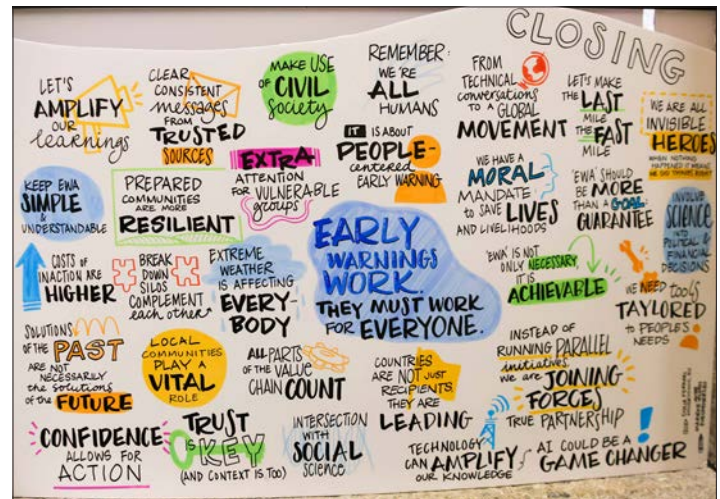 CLOSING
LET'S
AMPLIFY
OUR
learnings
CLEAR
CONSISTENT
messages
FROM
TRUSTED
SOURCES
MAKE USE
OF CIVIL
Society
REMEMBER:
WE'RE
ALL
HUMANS
FROM
TECHNICAL
conversations
TO A GLOBAL
MOVEMENT
LET'S MAKE
THE LAST
MILE
THE FAST
MILE
WE ARE ALL
INVISIBLE
HEROES
WHEN NOTHING
HAPPENED IT MEANS
WE DID THINGS RIGHT
KEEP EWA
SIMPLE
&
UNDERSTANDABLE
PREPARED
COMMUNITIES
ARE MORE
RESILIENT
EXTRA
ATTENTION
FOR VULNERABLE
groups
IT IS ABOUT
PEOPLE-
centered
EARLY WARNING
WE HAVE A
MORAL
MANDATE
TO SAVE LIVES
AND LIVELIHOODS
'EWA' SHOULD
BE MORE
THAN A GOAL:
GUARANTEE
INVOLVE
SCIENCE
INTO
POLITICAL &
FINANCIAL
DECISIONS
COSTS OF
INACTION ARE
HIGHER
BREAK
DOWN
SILOS
COMPLEMENT
each other
EXTREME
WEATHER
IS AFFECTING
EVERY-
BODY
EARLY
WARNINGS
WORK.
THEY MUST WORK
FOR EVERYONE.
'EWA' IS NOT
ONLY NECESSARY,
IT IS
ACHIEVABLE
WE NEED tools
TAYLORED
to PEOPLE'S
NEEDS
SOLUTIONS
OF THE PAST
ARE NOT
NECESSARILY
the solutions
of the FUTURE
LOCAL
COMMUNITIES
PLAY A
VITAL
ROLE
ALL PARTS
OF THE VALUE
CHAIN COUNT
COUNTRIES
ARE NOT JUST
RECIPIENTS,
THEY ARE
LEADING
INSTEAD OF
RUNNING PARALLEL
initiatives
we are JOINING
FORCES
TRUE PARTNERSHIP
CONFIDENCE
ALLOWS FOR
ACTION
TRUST
IS KEY
(AND CONTEXT IS TOO)
INTERSECTION
WITH
SOCIAL
science
TECHNOLOGY
CAN AMPLIFY
OUR KNOWLEDGE
AI COULD BE A
GAME CHANGER